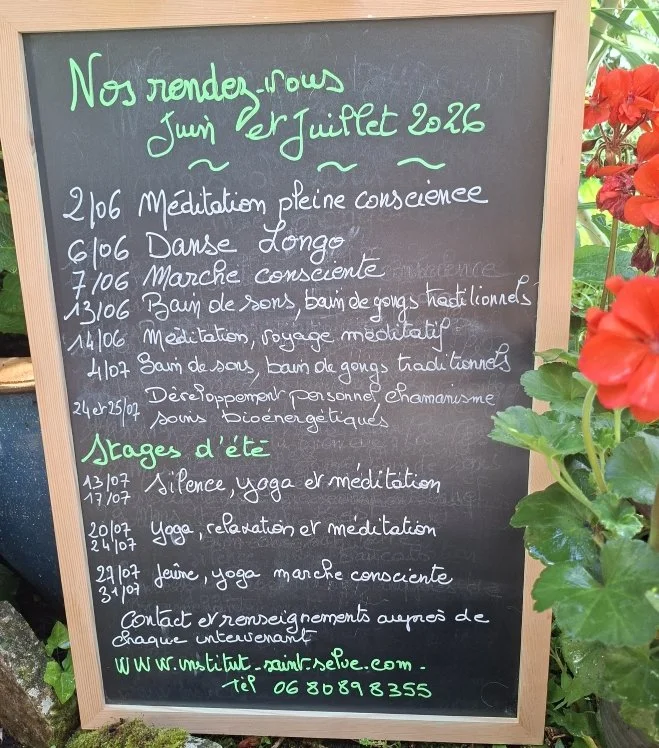 Nos rendez-vous
Juin et Juillet 2026
2/06 Méditation pleine conscience
6/06 Danse Longo
7/06 Marche consciente
13/06 Bain de sons, bain de gongs traditionnels
14/06 Méditation, voyage méditatif
4/07 Bain de sons, bain de gongs traditionnels
24 et 25/07 Développement personnel chamanisme
soins bioénergétiques
Stages d'été
13/07 Silence, yoga et méditation
17/07
20/07 yoga, relaxation et méditation
24/07
/07 jeûne, yoga marche consciente
31/07
Contact et renseignements auprès de
chaque intervenant
www.institut-saint-selve.com.
Tèl 0680898355